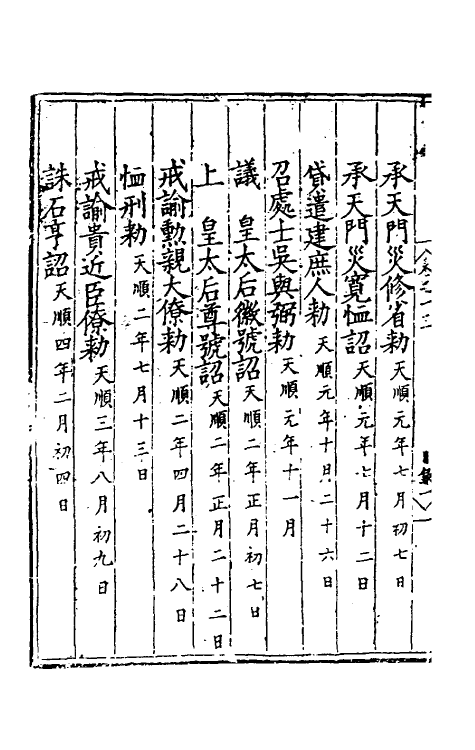 承天門災修省勅天順元年七月初七日
承天門災寬恤詔天順元年七月十二日
貸遣建庶人勅天順元年十月二十六日
召處士吳與弼勅天順元年十一月
議　皇太后徽號詔天順二年正月初七日
上　皇太后尊號詔天順二年正月二十二日
戒諭勲親大僚勅天順二年四月二十八日
恤刑勅天順二年七月十三日
戒諭貴近臣僚勅天順三年八月初九日
誅石亨詔天順四年二月初四日